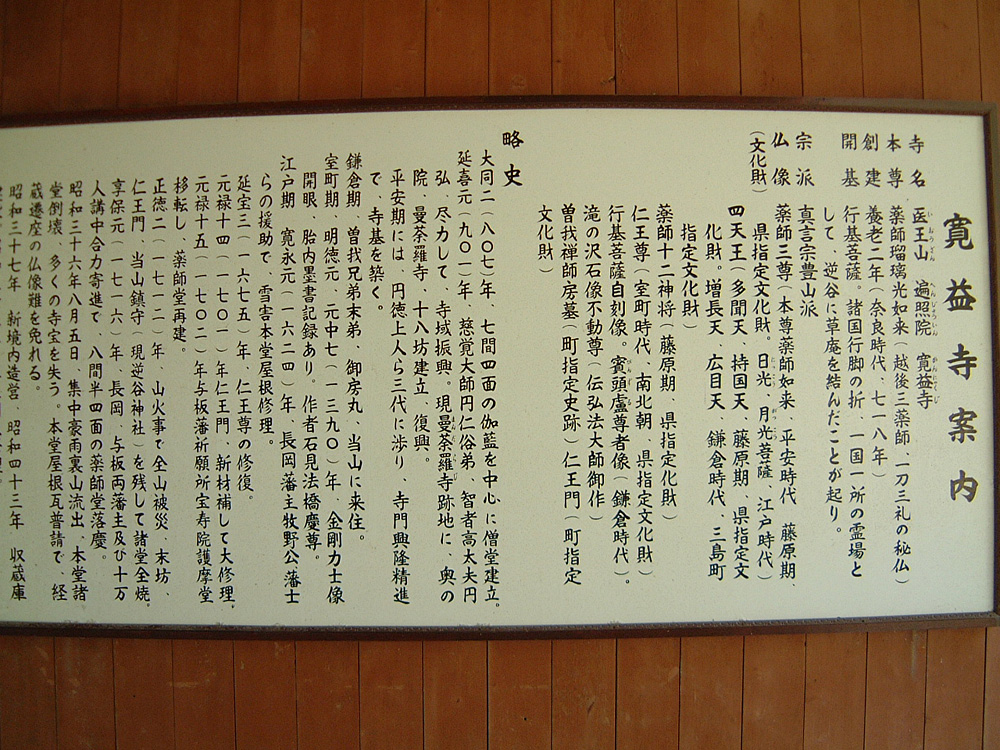 寛益寺案内
寺名　医王山　遍照院　寛益寺
いおうざん　へんしょういん　かんやくじ
本尊　薬師瑠璃光如来（越後三薬師、一刀三礼の秘仏）
創建　養老二年（奈良時代、七一八年）
開基　行基菩薩。諸国行脚の折、一国一所の霊場と
して、逆谷に草庵を結んだことが起り。
宗派　真言宗豊山派
仏像　薬師三尊（本尊薬師如来、平安時代、藤原期、
（文化財）　県指定文化財。日光、月光菩薩、江戸時代）
四天王（多聞天、持国天、藤原期、県指定文
化財。増長天、広目天、鎌倉時代、三島町
指定文化財）
薬師十二神将（藤原期、県指定化財）
仁王尊（室町時代、南北朝、県指定文化財）
行基菩薩自刻像。賓頭盧尊者像（鎌倉時代）。
滝の沢石像不動尊（伝弘法大師御作）
曽我禅師房墓（町指定史跡）仁王門（町指定
文化財）
略史
大同二（八〇七）年、七間四面の伽藍を中心に僧堂建立。
延喜元（九〇一）年、慈覚大師円仁俗弟、智者高太夫円
弘、尽力して、寺域振興。現曼荼羅寺跡地に、奥の
院、曼荼羅寺、十八坊建立、復興。
平安期には、円徳上人ら三代に渉り、寺門興隆精進
で、寺基を築く。
鎌倉期、曽我兄弟末弟、御房丸、当山に来住。
室町期、明徳元、元中七（一三九〇）年、金剛力士像
開眼、胎内墨書記録あり。作者石見法橋慶尊。
江戸期　寛永元（一六二四）年、長岡藩主牧野公藩士
らの援助で、雪害本堂屋根修理。
延宝三（一六七五）年、仁王尊の修復。
元禄十四（一七〇一）年仁王門、新材補して大修理。
元禄十五（一七〇二）年与板藩祈願所宝寿院護摩堂
移転し、薬師堂再建。
正徳二（一七一二）年、山火事で全山被災、末坊、
仁王門、当山鎮守（現逆谷神社）を残して諸堂全焼。
享保元（一七一六）年、長岡、与板両藩主及び十万
人講中合力寄進で、八間半四面の薬師堂落慶。
昭和三十六年八月五日、集中豪雨裏山流出、本堂諸
堂倒壊、多くの寺宝を失う。本堂屋根瓦普請で、経
蔵遷座の仏像難を免れる。
昭和三十七年、新境内造営、昭和四十三年　収蔵庫